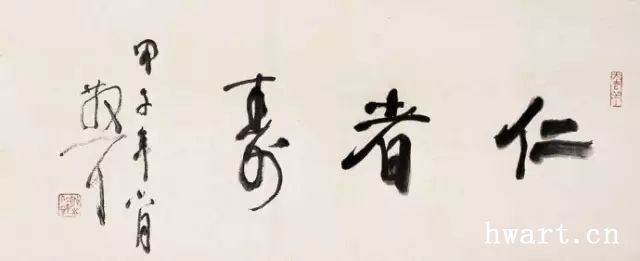 仁者寿
甲子年八月
散耳
hwart.cn